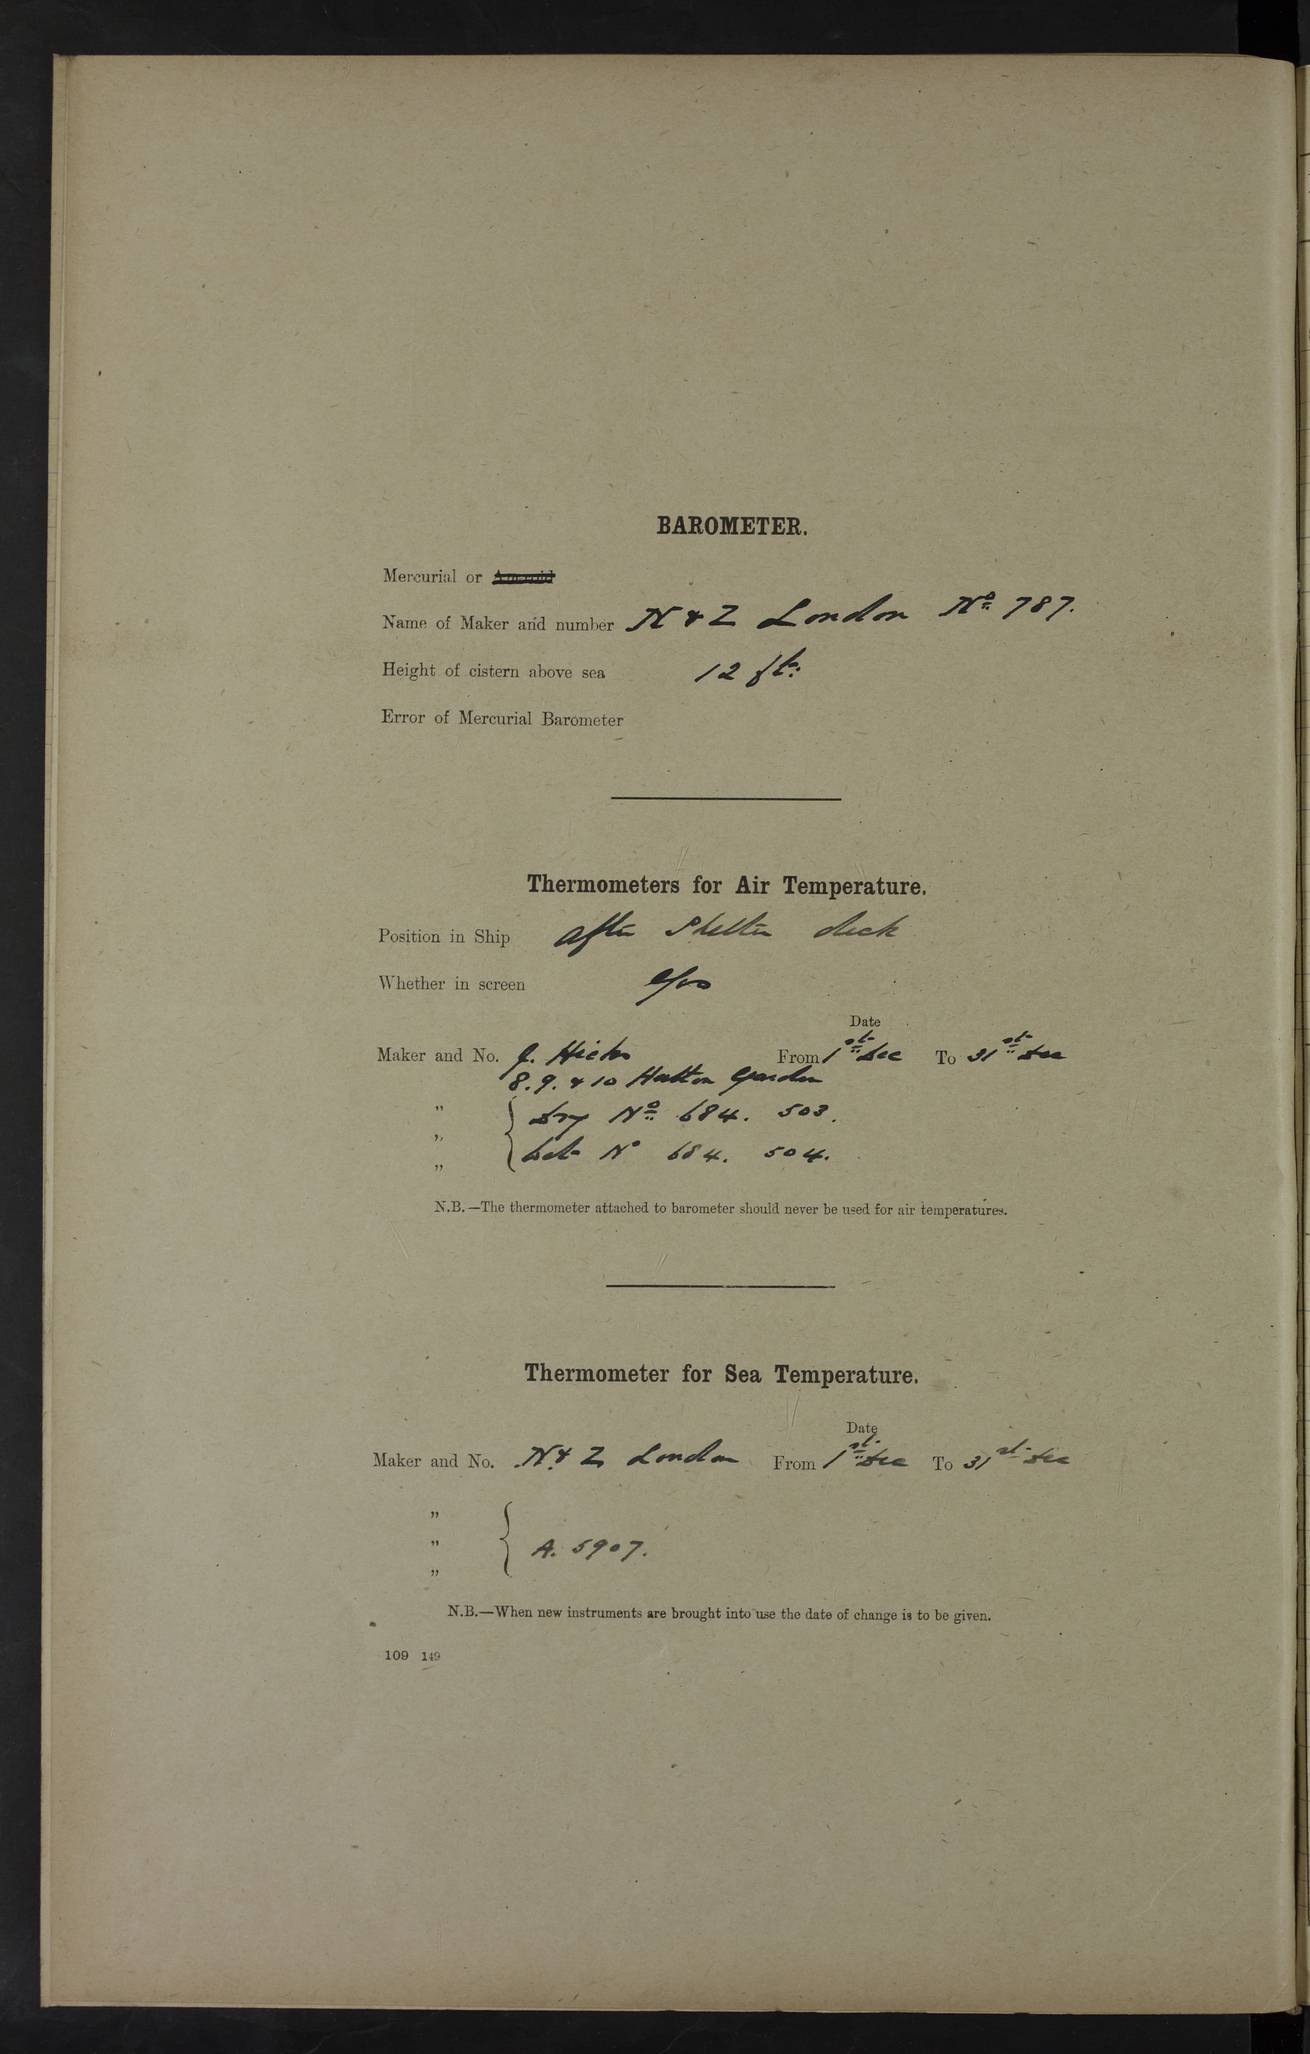 BAROMETER.
Mercurial or Aneroid
Name of Maker and number N & Z London Nº 787.
Height of cistern above sea 12 ft.
Error of Mercurial Barometer
Thermometers for Air Temperature.
Position in Ship After Shelter deck
Whether in screen Yes
Date
Maker and No. J. Hicks From 1st Dec To 31st Dec
8. 9. & 10 Hatton Garden
" { Dry Nº 684. 503.
"
" Wet Nº 684. 504.
N.B.—The thermometer attached to barometer should never be used for air temperatures.
Thermometer for Sea Temperature.
Date
Maker and No. N & Z London From 1st Dec To 31st Dec
"
" { A. 5907.
"
N.B.—When new instruments are brought into use the date of change is to be given.
109 149